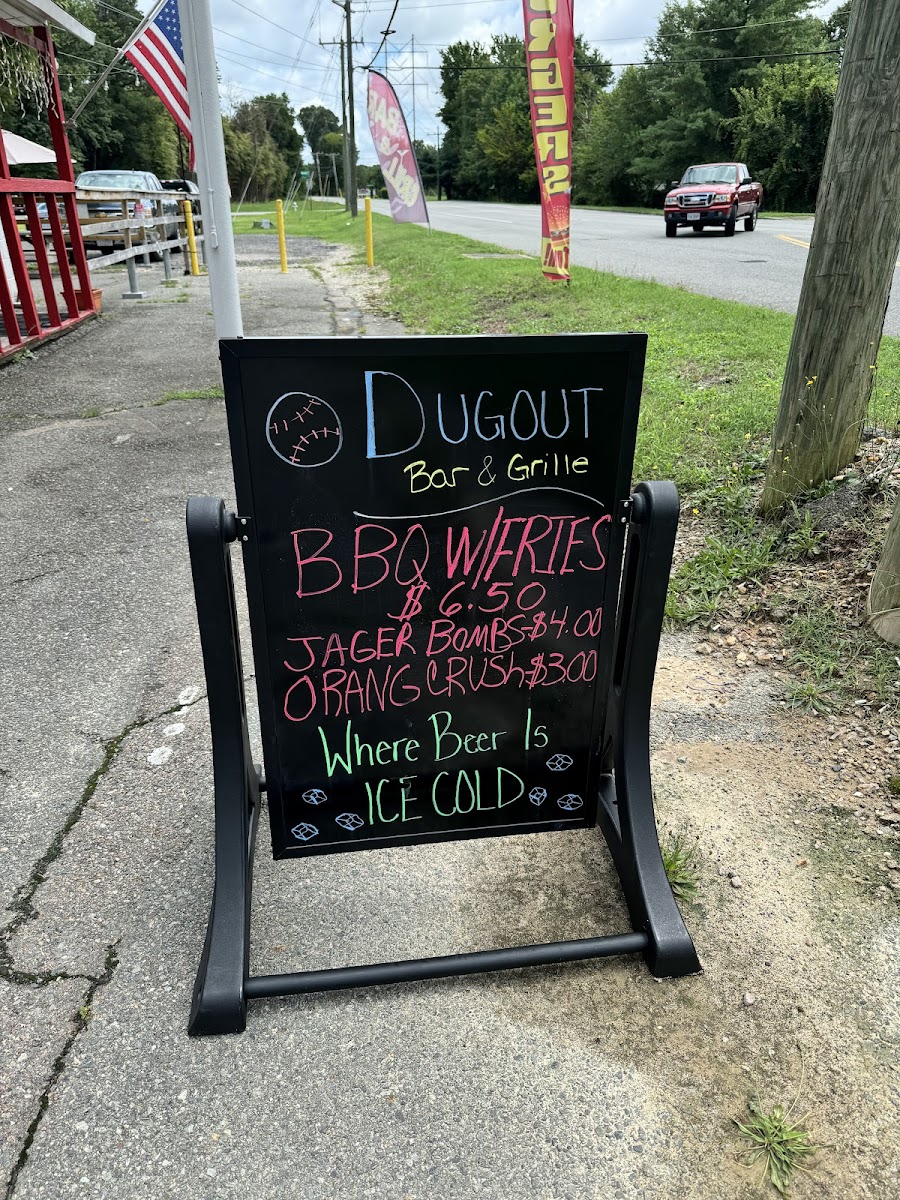 DUGOUT
Bar & Grille
BBQ W/FRIES
$ 6.50
JAGER BOMBS-$4.00
ORANG CRUSH-$3.00
Where Beer Is
ICE COLD
BAR
&